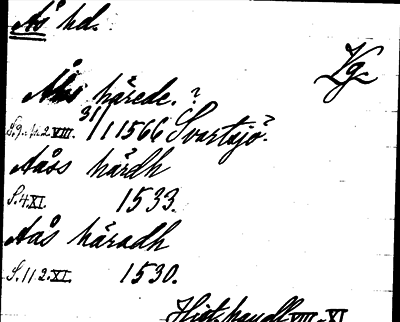 Ås hd.
Vg.
Åås härede. ?
S. 9. 2 VIII. 31/1 1566 Svartsjö.
Aåss härdh
S. 4. XI. 1533.
Aås häradh
S. 11 2. XI. 1530.
Hist. handl. VIII - XI